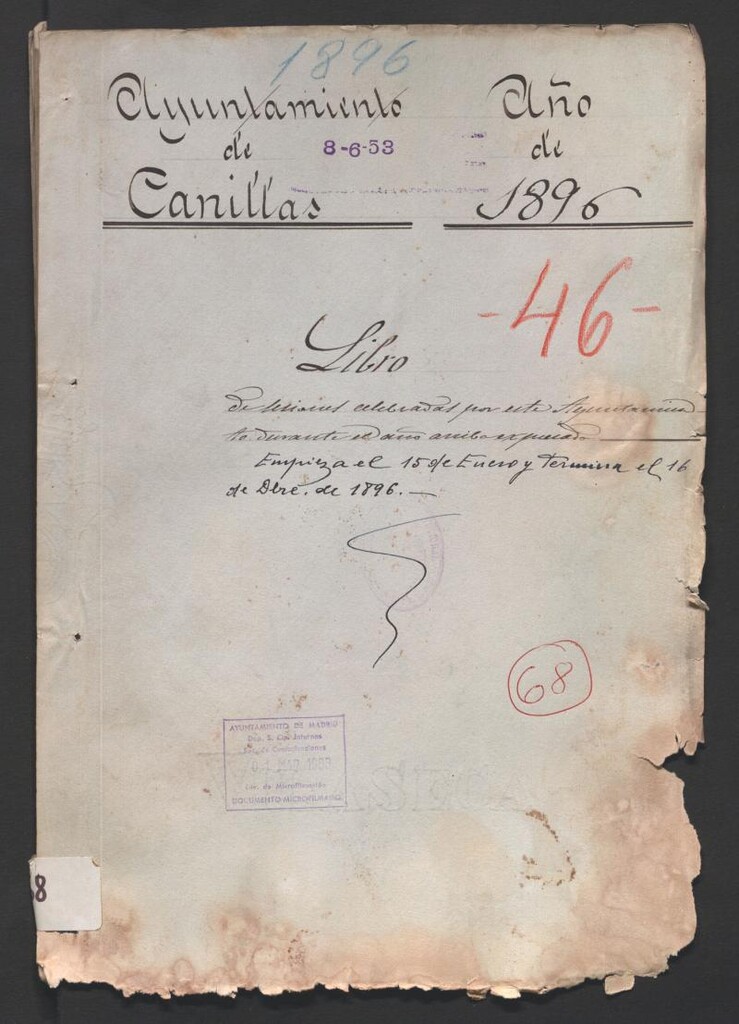 1896
Ayuntamiento Año
de 8-6-53 de
Canillas 1896
-46-
Libro
de sesiones celebradas por este Ayuntamien
to durante el año arriba expresado
Empieza el 15 de Enero y Termina el 16
de Dbre. de 1896.—
68
AYUNTAMIENTO DE MADRID
Dep. S. Gns. Internos
MAR 1983
Ser. de Microfilmación
DOCUMENTO MICROFILMADO
8